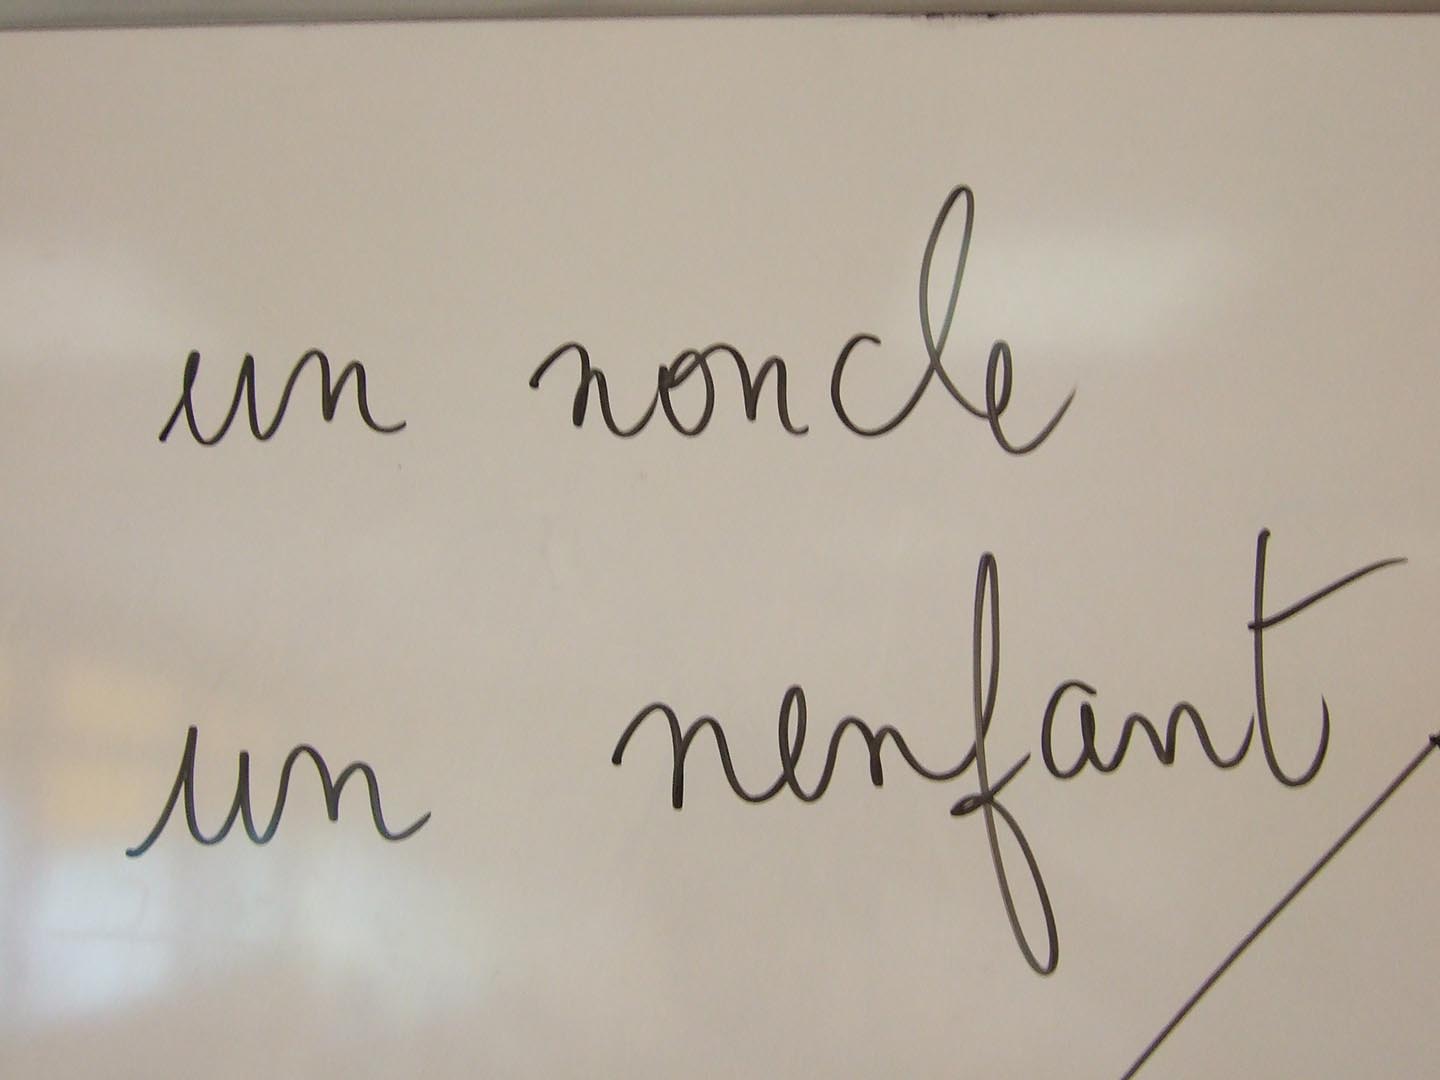 un noncle
un nenfant